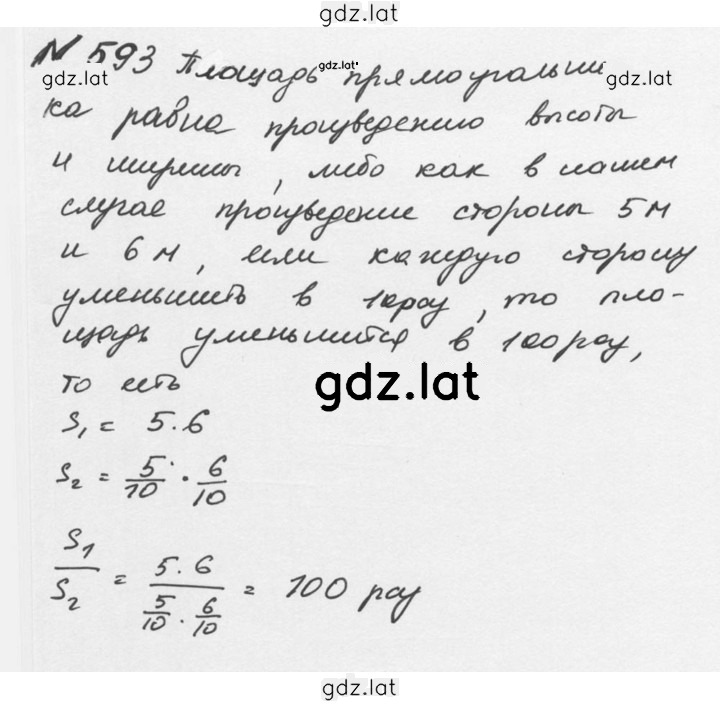 gdz.lat
№ 593 Площадь прямоугольни
gdz.lat gdz.lat gdz.lat
ка равна произведению высоты
и ширины, либо как в нашем
случае произведение стороны 5м
и 6м, если каждую сторону
уменьшить в 10раз, то пло-
щадь уменьшится в 100раз,
то есть
gdz.lat
S₁ = 5.6
S₂ = 5/10 · 6/10
S₁/S₂ = 5.6/(5/10 · 6/10) = 100 раз
gdz.lat